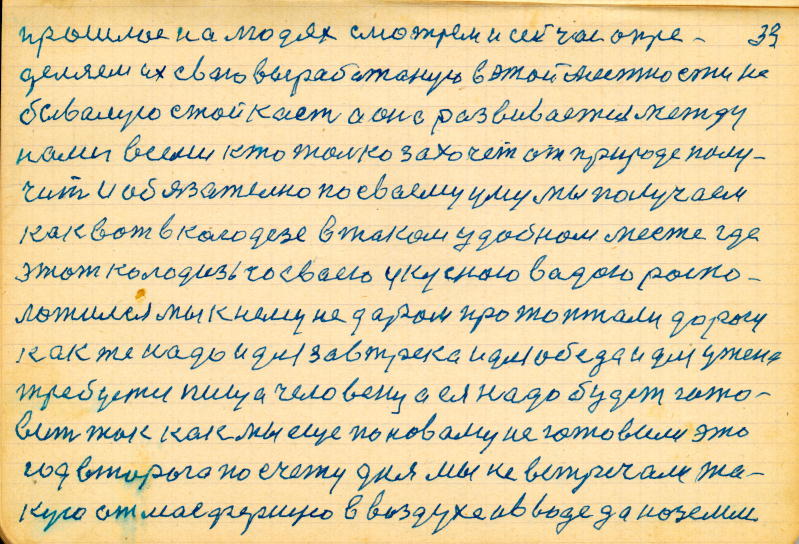 прошлое на людях смотрем и сейчас опре- 33
деляем их сваю вырабатаную в этой местности не
бывалую стойкаст а она развивается между
нами всеми кто толко захочет от природе полу-
чит и обязателно по сваему уму мы получаем
как вот в колодезе в таком удобном месте где
этот колодизь со сваею укусною вадою роспо-
ложился мы к нему не даром протоптали дорогу
как же надо и для завтрека и для обеда и для ужена
требуется пища человеку а ея надо будет гото-
вит так как мы еще по новаму не готовили это
год второга по счету дня мы не встречали та-
кую атмасферную в воздухе и в воде да и земли